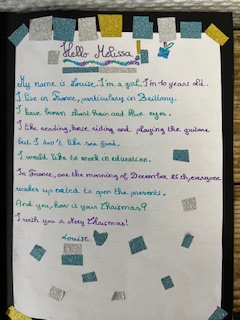 Hello Melissa
My name is Louise. I'm a girl. I'm 10 years old.
I live in France, particulary in Brittany.
I have brown short hair and blue eyes.
I like reading, horse riding and playing the guitare
but I don't like sea food.
I would like to work in education.
In France, one the morning of December 25th, everyone
wakes up exited to open the presents.
And you, how is your Chrismas?
I wish you a Mery Chrismas!
Louise